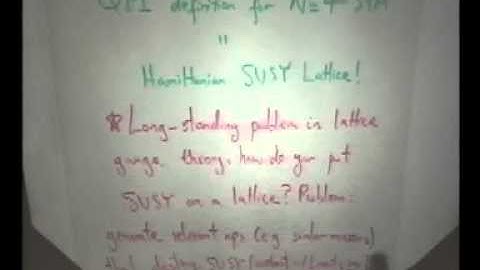 definition for N=4 SYM
=
Hamiltonian SUSY Lattice!
* Long-standing problem in lattice
gauge theory, how do you put
SUSY on a lattice? Problem:
generate relevant ops (e.g. scalar masses)
that destroy SUSY